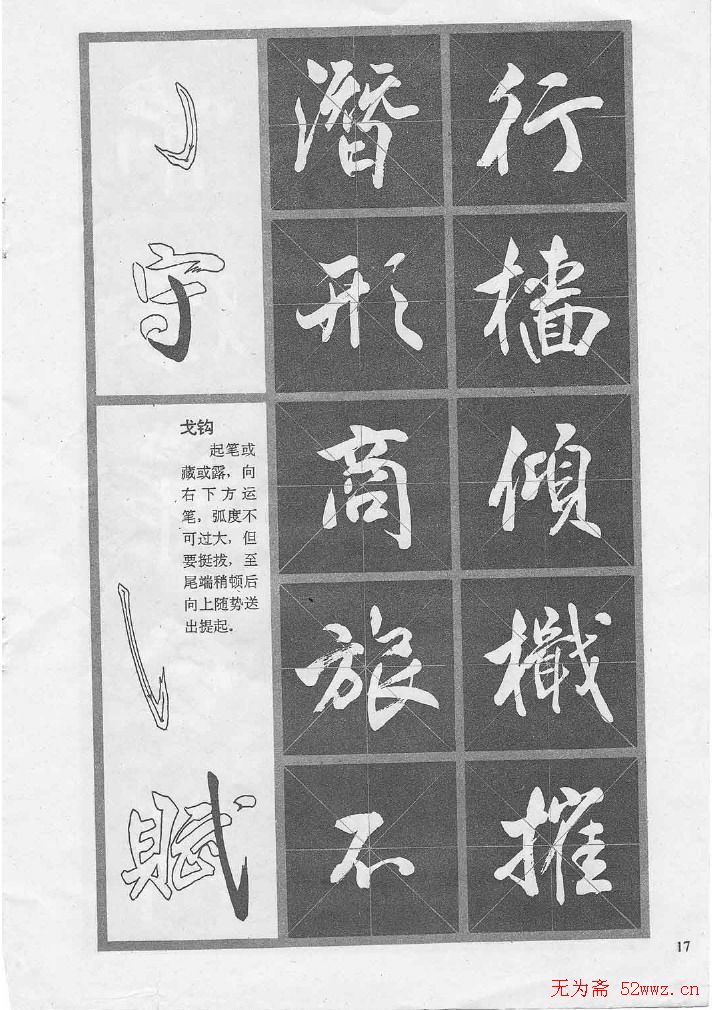 潛
行
形
檣
守
戈钩
起笔或
藏或露，向
右下方运
笔，弧度不
可过大，但
要挺拔，至
尾端稍顿后
向上随势送
出提起。
商
傾
旅
檝
賦
不
摧
17
无为斋 52wwz.cn